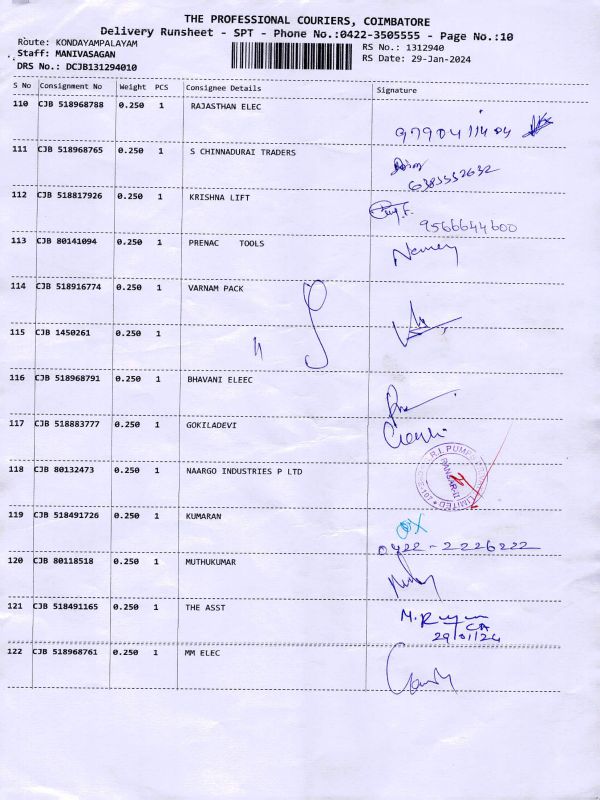 THE PROFESSIONAL COURIERS, COIMBATORE
Delivery Runsheet - SPT - Phone No.:0422-3505555 - Page No.:10
Route: KONDAYAMPALAYAM
Staff: MANIVASAGAN
DRS No.: DCJB131294010
RS No.: 1312940
RS Date: 29-Jan-2024
S No Consignment No Weight PCS Consignee Details Signature
110 CJB 518968788 0.250 1 RAJASTHAN ELEC
9790411404
111 CJB 518968765 0.250 1 S CHINNADURAI TRADERS
6383552632
112 CJB 518817926 0.250 1 KRISHNA LIFT
9566644600
113 CJB 80141094 0.250 1 PRENAC TOOLS
114 CJB 518916774 0.250 1 VARNAM PACK
115 CJB 1450261 0.250 1 "
116 CJB 518968791 0.250 1 BHAVANI ELEEC
117 CJB 518883777 0.250 1 GOKILADEVI
118 CJB 80132473 0.250 1 NAARGO INDUSTRIES P LTD
119 CJB 518491726 0.250 1 KUMARAN
0422-2226222
120 CJB 80118518 0.250 1 MUTHUKUMAR
121 CJB 518491165 0.250 1 THE ASST
CA
29/01/24
122 CJB 518968761 0.250 1 MM ELEC